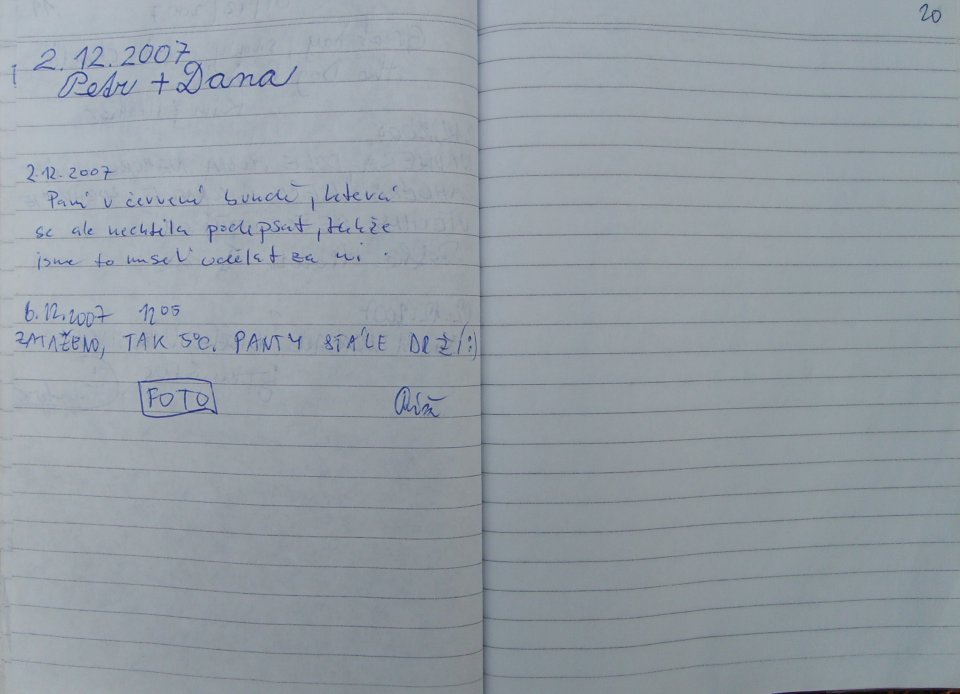 2.12.2007
Petr + Dana
2.12.2007
Paní v červení bundě, která
se ale nechtěla podepsat, takže
jsme to museli udělat za ni.
6.12.2007 12 05
ZMAŽENO, TAK 5°C. PANTY STÁLE DRŽÍ :)
FOTO
20